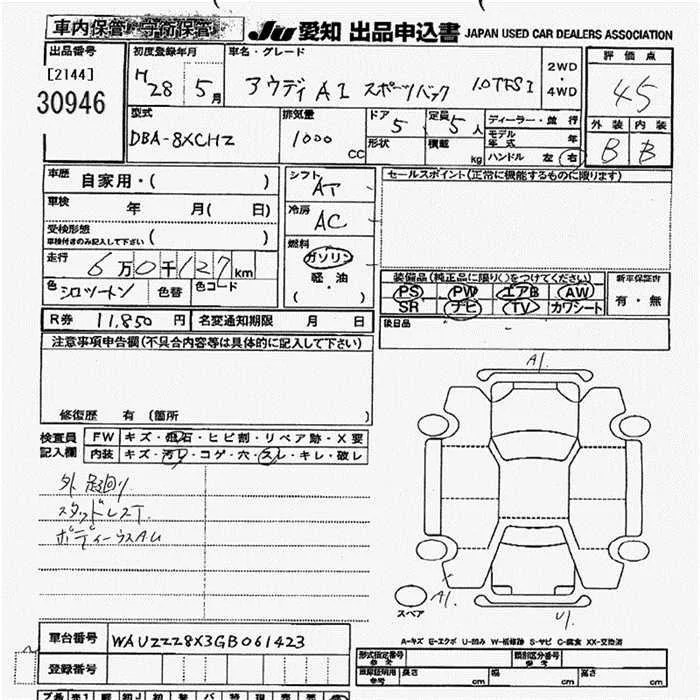 車内保管
JU 愛知 出品申込書 JAPAN USED CAR DEALERS ASSOCIATION
出品番号 初度登録年月 車名・グレード 評価点
[2144] H28 5月 アウディ A1 スポーツバック 1.0TFSI 2WD・4WD 45
30946
型式 排気量 ドア 定員 ディーラー・並行 外装 内装
DBA-8XCHZ 1000cc 5 5人 モデル年式 年 B B
形状 積載 kg ハンドル 左 右
車歴 自家用・( ) シフト AT セールスポイント(正常に機能するものに限ります)
車検 年 月( 日) 冷房 AC
受検形態 ( )
車検付きのみ記入して下さい
走行 6万0千127km 燃料 ガソリン 軽・油 ( ・ )
装備品(純正品に限り()をつけてください) 新車保証書
色 シロツートン 色替 色コード PS PW エアB AW 有・無
SR ナビ TV カワシート
R券 11,850円 名変通知期限 月 日 後日品
注意事項申告欄(不具合内容等は具体的に記入して下さい)
修復歴 有 (箇所 )
検査員 FW キズ・飛石・ヒビ割・リペア跡・X要
記入欄 内装 キズ・汚レ・コゲ・穴・スレ・キレ・破レ
A1.
外 足廻り
スタッドレスT.
ボディーウスAU
A1. U1.
スペア
A-キズ E-エクボ U-凹み W-補修跡 S-サビ C-腐食 XX-交換済
車台番号 WAUZZZ8X3GB061423
登録番号
形式指定番号 参考 類別区分番号 参考
長さ cm 幅 cm 高さ cm